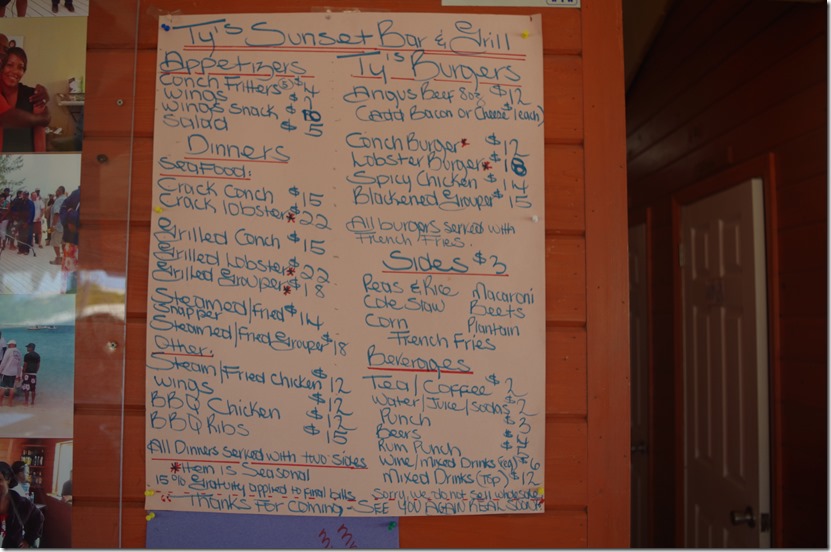 Ty's Sunset Bar & Grill
Appetizers
Conch Fritters(6) $4
Wings $
Wings Snack $8
Salad $5
Dinners
Seafood:
Crack Conch $15
Crack lobster* $22
Grilled Conch $15
Grilled Lobster* $22
Grilled Grouper* $18
Steamed/Fried Snapper $14
Steamed/Fried Grouper $18
Other:
Steam/Fried Chicken $12
Wings $12
BBQ Chicken $12
BBQ Ribs $15
All Dinners served with two sides
*Item is Seasonal
15% Gratuity applied to final bills
Ty's Burgers
Angus Beef 8oz $12
(Add Bacon or Cheese $1 each)
Conch Burger* $12
Lobster Burger* $18
Spicy Chicken $14
Blackened Grouper $15
All burgers served with
French Fries.
Sides $3
Peas & Rice Macaroni
Cole Slaw Beets
Corn Plantain
French Fries
Beverages
Tea/Coffee $2
Water/Juice/Sodas $2
Punch $3
Beers $4
Rum Punch $5
Wine/Mixed Drinks (reg) $6
Mixed Drinks (Top) $12
Sorry, we do not sell wholesale
Thanks For Coming - SEE YOU AGAIN REAL SOON!!